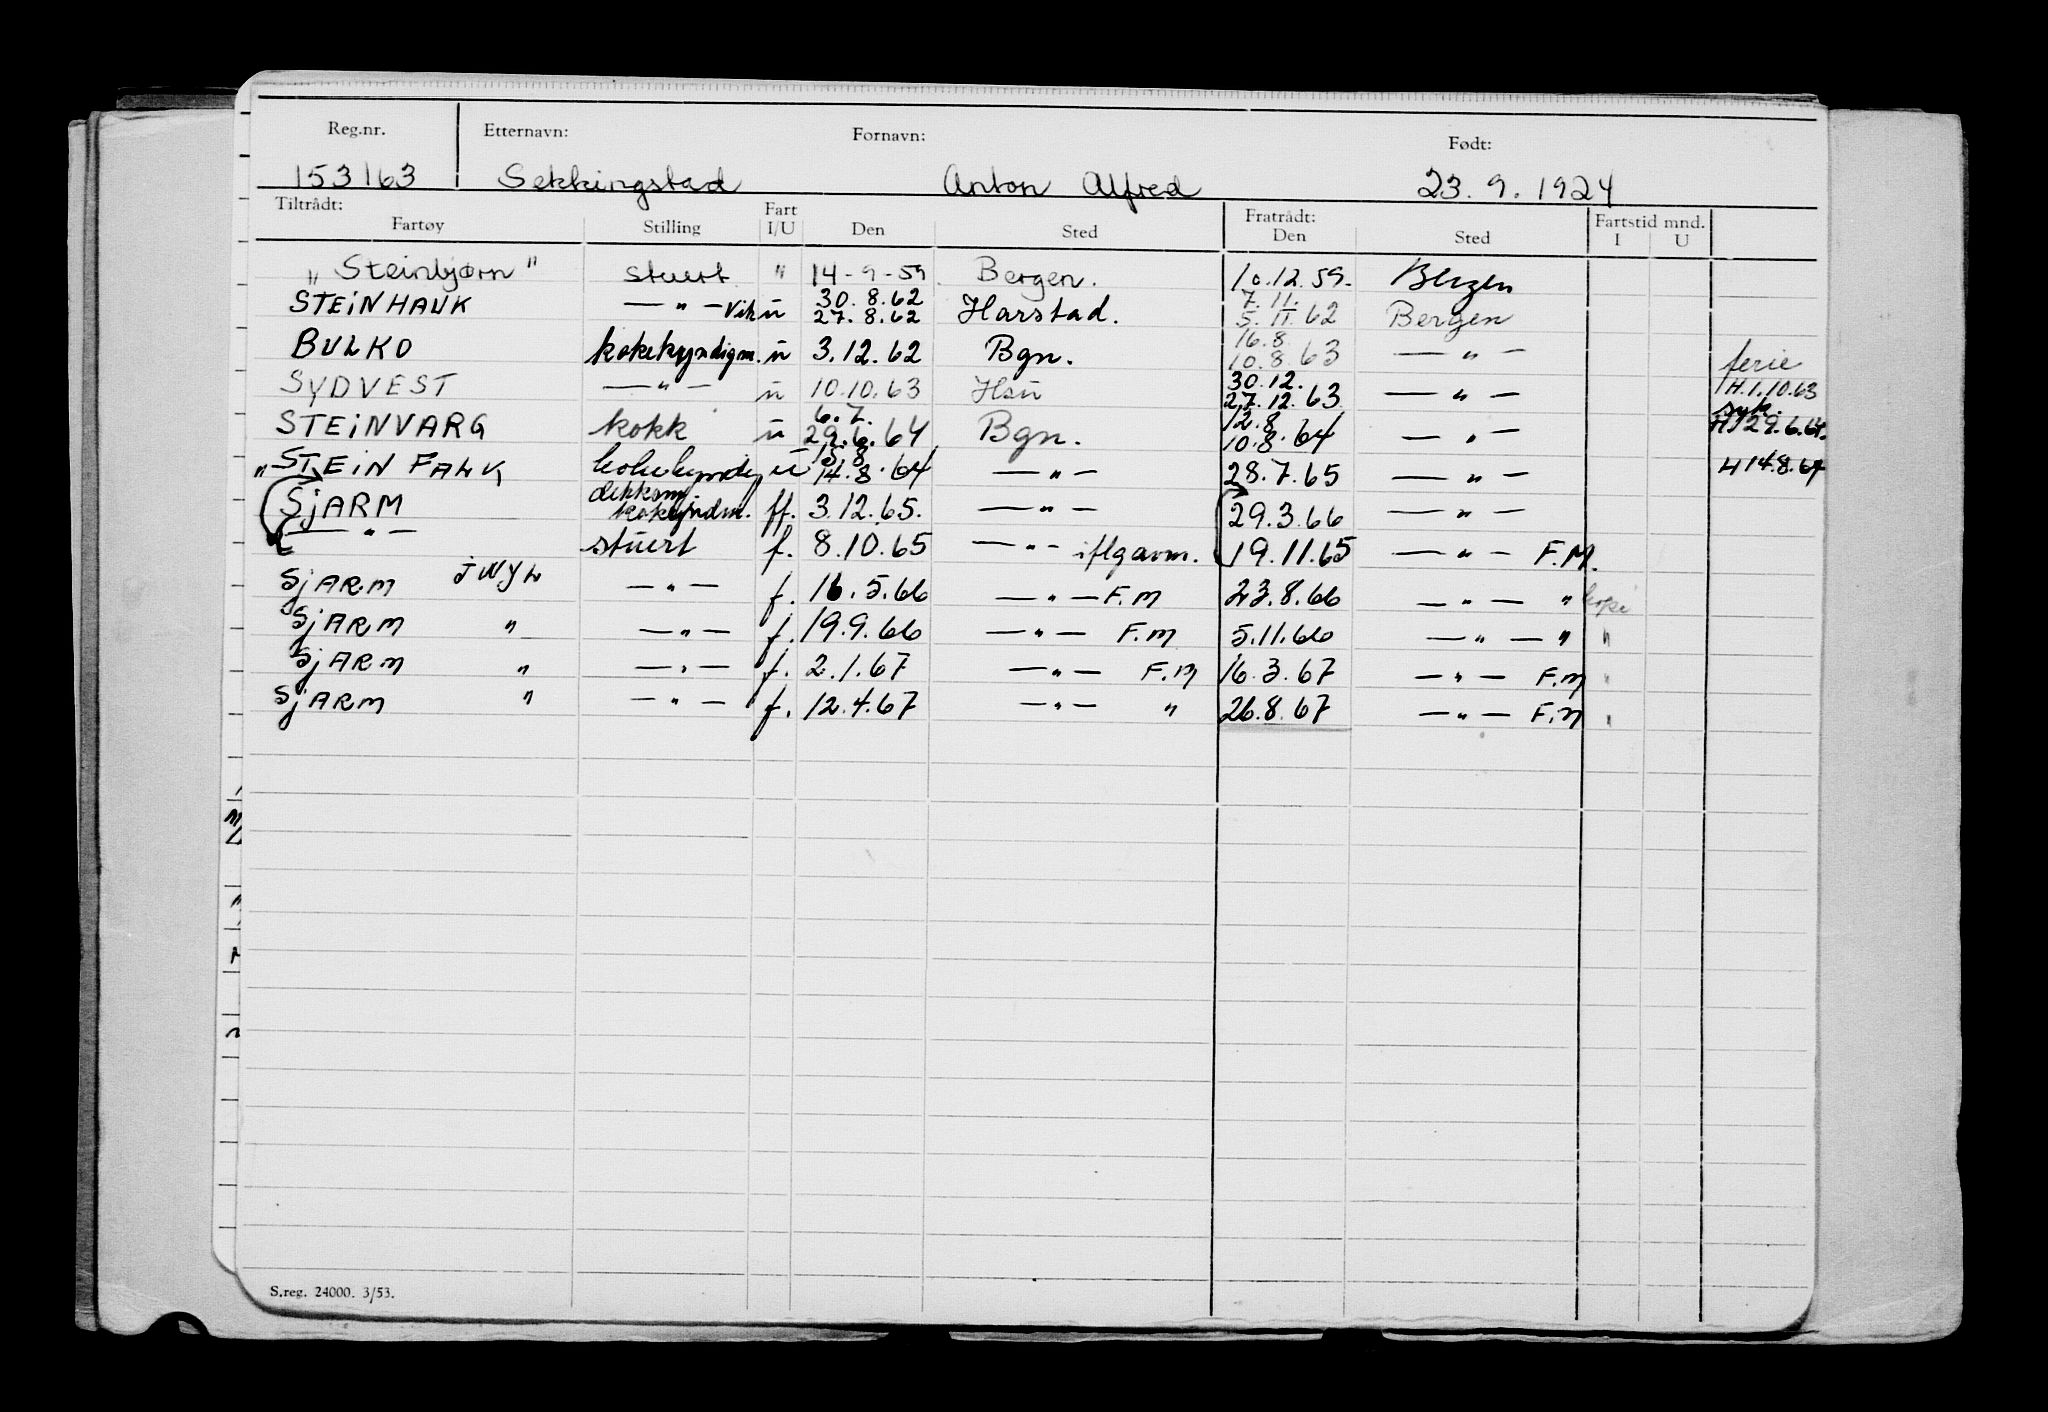 Reg.nr. Etternavn: Fornavn: Født:
153163 Sekkingstad Anton Alfred 23.9.1924
Tiltrådt: Fart Fratrådt: Fartstid mnd.
Fartøy Stilling I/U Den Sted Den Sted I U
"Steinbjørn" stuert " 14-9-59 Bergen. 10.12.59. Bergen
STEINHAUK — " — vik u 30.8.62 27.8.62 Harstad. 7.11. 5.11.62 Bergen
BULKO kokekyndigm. u 3.12.62 Bgn. 16.8. 10.8.63 — " — ferie
SYDVEST — " — u 10.10.63 Hsu 30.12. 27.12.63 — " — H.1.10.63
STEINVARG kokk u 6.7. 29.6.64 Bgn. 12.8 10.8.64 — " — syk. H 29.6.64.
"STEINFALK u 15.8 14.8.64 — " — 28.7.65 — " — H 14.8.64
SJARM dekksm kokkyndm. ff. 3.12.65. — " — 29.3.66 — " —
— " — stuert f. 8.10.65 — " — iflg avm. 19.11.65 — " — F.M.
SJARM JWYL — " — f. 16.5.66 — " — F.M 23.8.66 — " — " kopi
SJARM " — " — f. 19.9.66 — " — F.M 5.11.66 — " — " "
SJARM " — " — f. 2.1.67 — " — F.M 16.3.67 — " — F.M "
SJARM " — " — f. 12.4.67 — " — " 26.8.67 — " — F.M "
S.reg. 24000. 3/53.